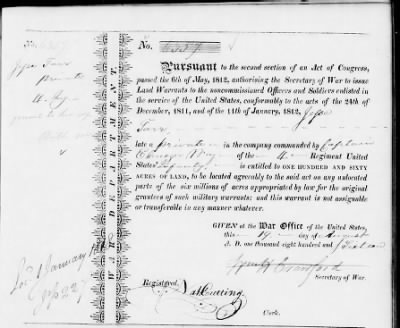 No. 6357
No. 6357
Jesse Tarr
private
4. Reg
WAR DEPARTMENT.
Pursuant to the second section of an Act of Congress,
passed the 6th of May, 1812, authorising the Secretary of War to issue
Land Warrants to the noncommissioned Officers and Soldiers enlisted in
the service of the United States, conformably to the acts of the 24th of
December, 1811, and of the 11th of January, 1812, Jesse
Tarr
late a private in the company commanded by Captain
of the 4. Regiment United
States' Infantry
is entitled to ONE HUNDRED AND SIXTY
ACRES OF LAND, to be located agreeably to the said act on any unlocated
part of the six millions of acres appropriated by law for the original
grantees of such military warrants; and this warrant is not assignable
or transferable in any manner whatever.
GIVEN at the War Office of the United States,
this 19 day of August
A. D. one thousand eight hundred and
Secretary of War.
Registered,
Clerk.
January